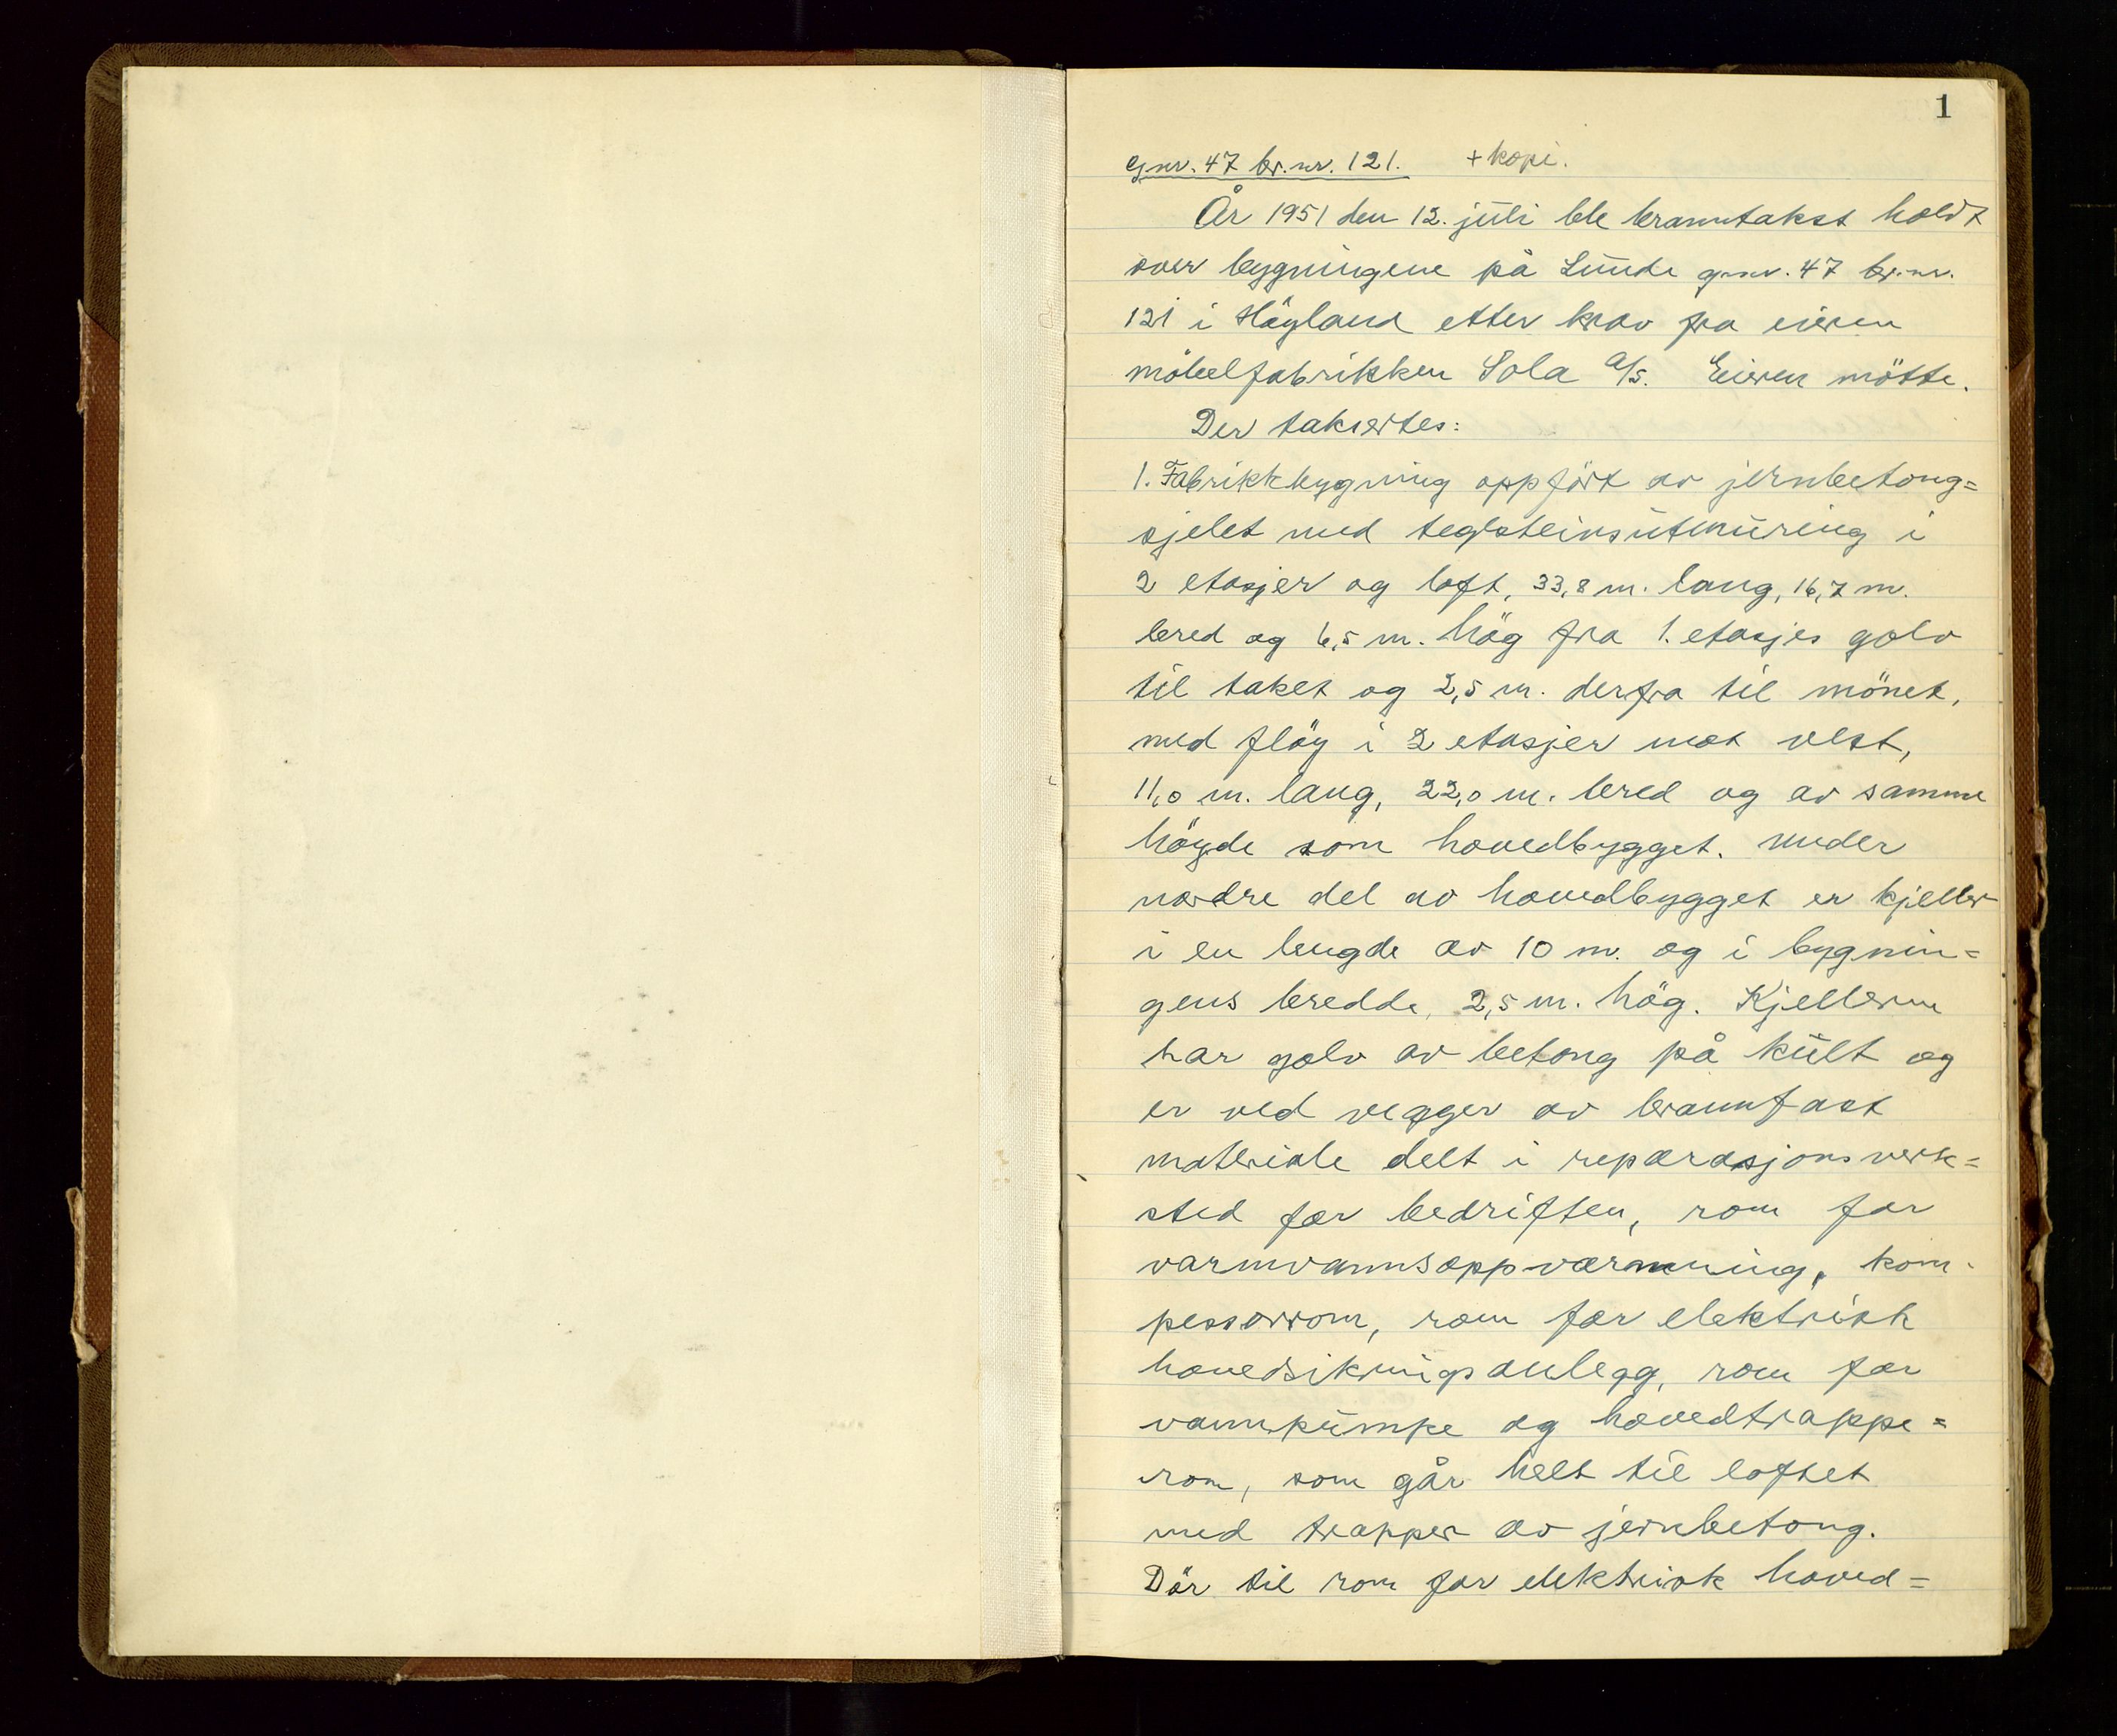 1
Gnr. 47 br.nr. 121. + kopi.
År 1951 den 12. juli ble branntakst holdt
over bygningene på Lunde g.nr. 47 br.nr.
121 i Höyland etter krav fra eieren
möbelfabrikken Sola A/S. Eieren mötte.
Der taksertes:
1. Fabrikkbygning oppfört av jernbetong=
sjelet med teglsteinsutmuring i
2 etasjer og loft, 33,8 m. lang, 16,7 m.
bred og 6,5 m. hög fra 1. etasjes golv
til taket og 2,5 m. derfra til mönet,
med flöy i 2 etasjer mot vest,
11,0 m. lang, 22,0 m. bred og av samme
höyde som hovedbygget. Under
nordre del av hovedbygget er kjeller
i en lengde av 10 m. og i bygnin=
gens bredde, 2,5 m. hög. Kjelleren
har golv av betong på kult og
er ved vegger av brannfast
materiale delt i reparasjonsverk=
sted for bedriften, rom for
varmvannsoppvarmning, kom-
pessorrom, rom for elektrisk
hovedsikringsanlegg, rom for
vannpumpe og hovedtrappe=
rom, som går helt til loftet
med trapper av jernbetong.
Dör til rom for elektrisk hoved=